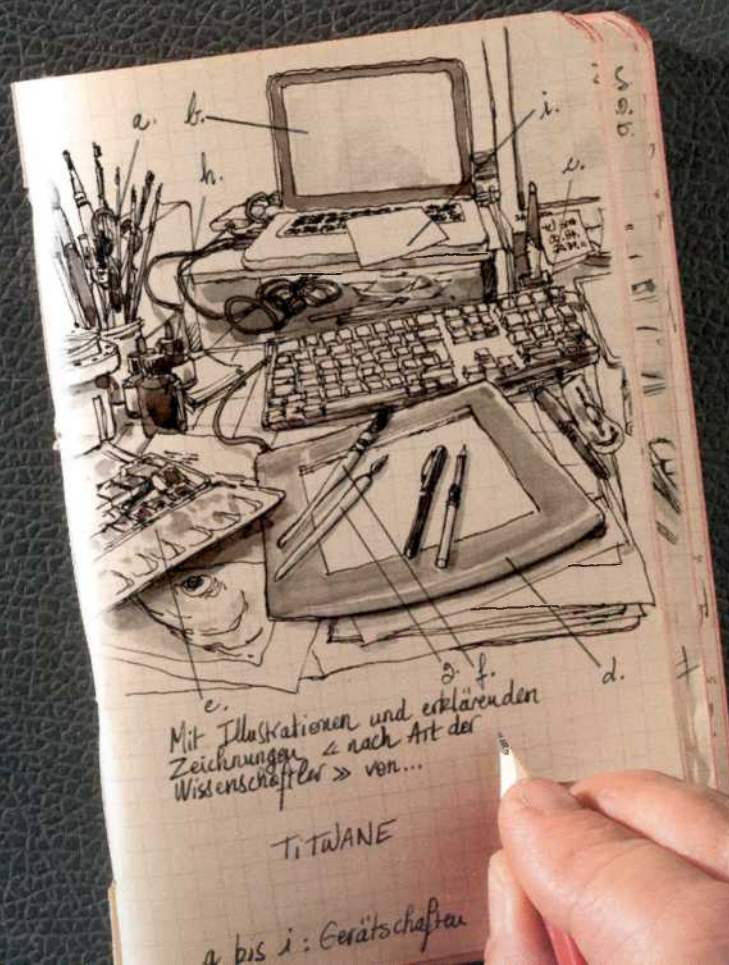 a.
b.
i.
h.
c.
g. f.
d.
e.
Mit Illustrationen und erklärenden
Zeichnungen « nach Art der
Wissenschaftler » von...
TiTWANE
a bis i : Gerätschaften